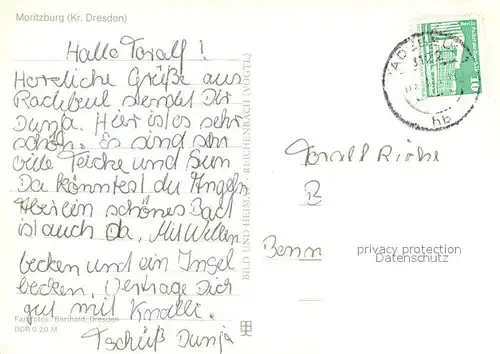 Moritzburg (Kr. Dresden)
Hallo Toralf!
Herrliche Grüße aus
Radebeul sendet Dir
Dunja. Hier ist es sehr
schön. Es sind sehr
viele Teiche und
Da könntest du Angeln
Aber ein schönes Bad
ist auch da. Mit Wellen
becken und ein Insel
becken. Vertrage Dich
gut mit Knalli.
Tschüß Dunja
Berthold, Dresden
DDR 0,20 M
BILD UND HEIMAT REICHENBACH (VOGTL)
10
hb
Toralf
B
Benn
privacy protection
Oldthing Datenschutz